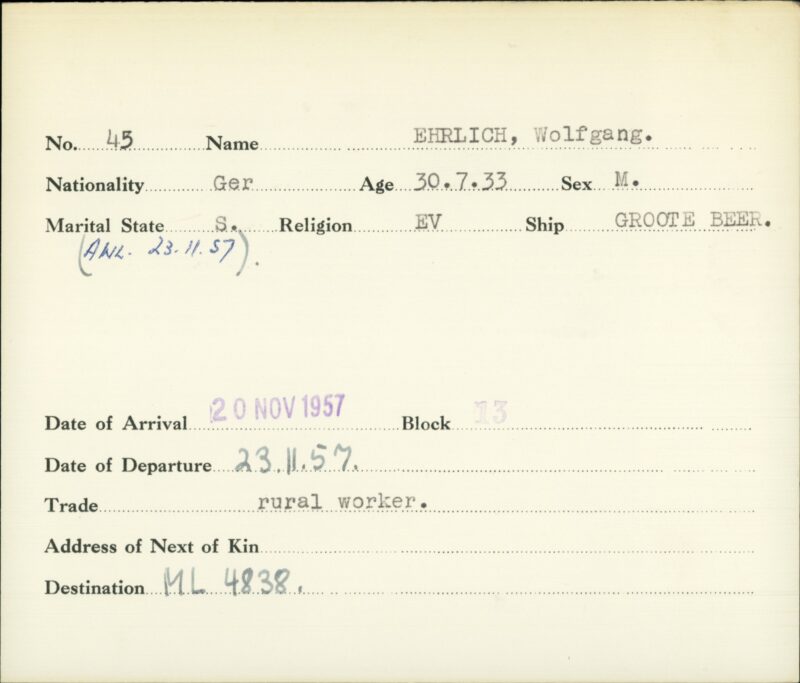 No. 45 Name EHRLICH, Wolfgang.
Nationality Ger Age 30.7.33 Sex M.
Marital State S. Religion EV Ship GROOTE BEER.
(AWL. 23.11.57).
Date of Arrival 20 NOV 1957 Block 13
Date of Departure 23.11.57.
Trade rural worker.
Address of Next of Kin
Destination ML 4838.